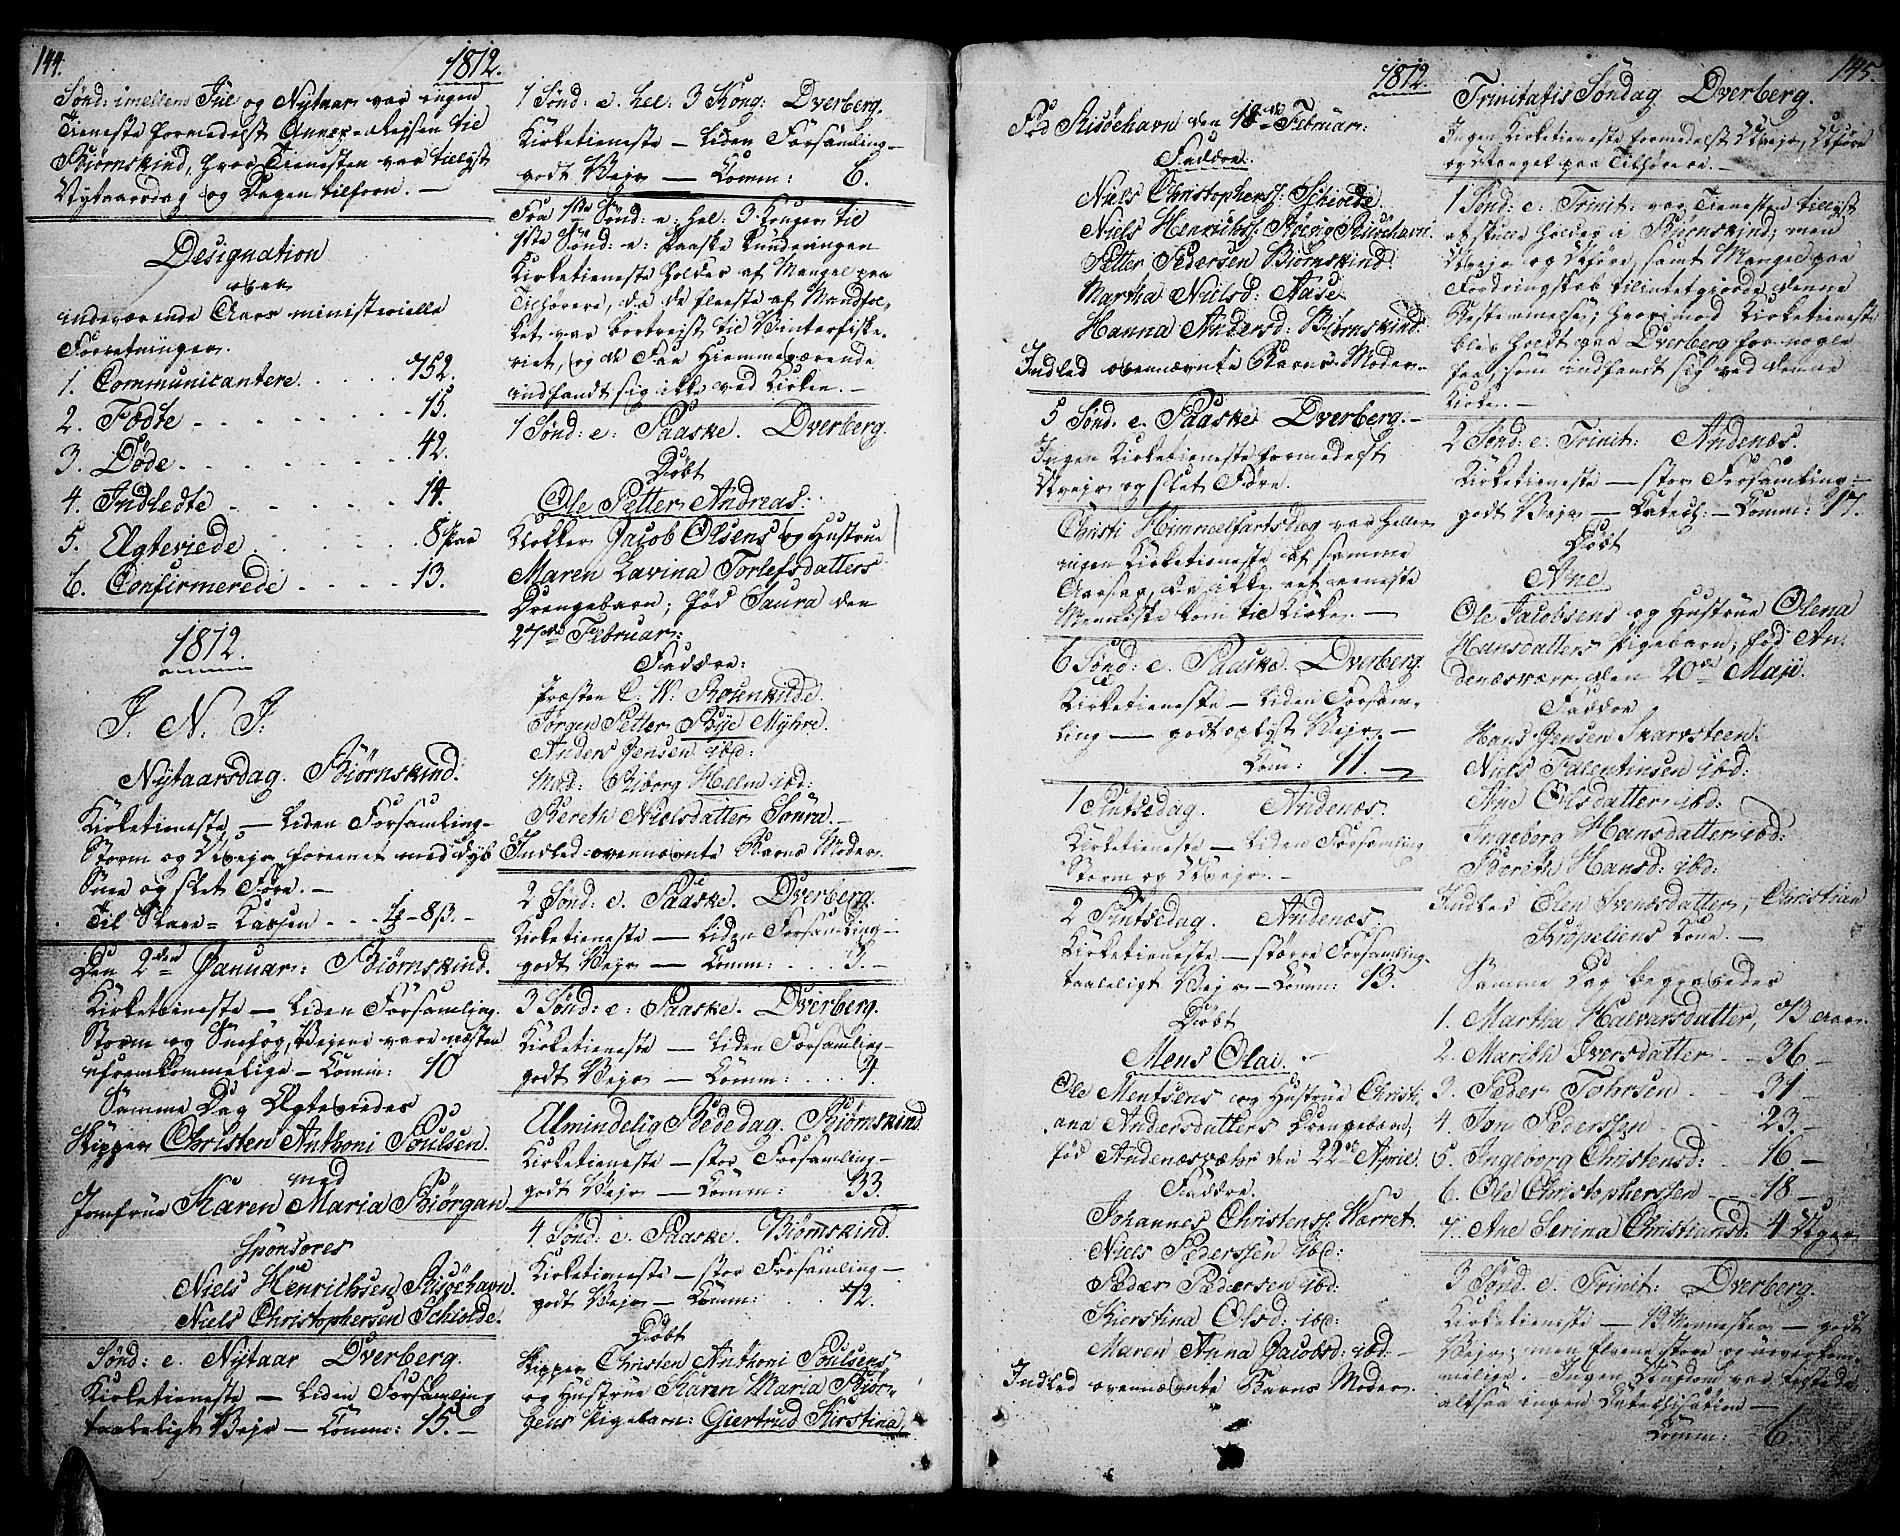 144.
1812.
Sønd: imellem Juel og Nytaar var ingen
Tieneste formedelst Annex-Rejsen til
Biørnskind, hvor Tienesten var tillyst
Nytaarsdag og Dagen tilforn. —
Designation
over
indeværende Aars ministerielle
Forretninger.
1. Communicantere . . . . 752.
2. Fødte - - - - - - 15.
3. Døde - - - - - - 42.
4. Indledte - - - - - 14.
5. Ægteviede - - - - 8 Par
6. Confirmerede - - - - 13.
1812.
J. N. J.
Nytaarsdag. Biørnskind.
Kirketieneste — liden Forsamling —
Storm og Uvejr foreenet med dyb
Snee og slet Føre. —
Til Skare = Kassen - - - 8 ß. —
Den 2den Januar: Biørnskind.
Kirketieneste — liden Forsamling.
Storm og Sneefog, Vejene vare næsten
ufremkommelige — Comm: 10
Samme Dag Ægteviedes
Skipper Christen Anthoni Poulsen
med
Jomfrue Karen Maria Biørgan.
Sponsores
Niels Henrichsen Risøehavn.
Niels Christophersen Schiolde.
Sønd: e. Nytaar Dverberg.
Kirketieneste — liden Forsamling
taaleligt Vejr — Comm: 15. —
1 Sønd: e. hel: 3 Kong: Dverberg.
Kirketieneste — liden Forsamling —
godt Vejr — Comm: 6.
Fra 1ste Sønd: e: hel: 3 Konger til
1ste Sønd: e: Paaske kunde ingen
Kirketieneste holdes af Mangel paa
Tilhørere, da de fleeste af Mandfol-
ket var bortrejst til Vinterfiske-
riet, og de faa Hiemmeværende
indfandt sig ikke ved Kirken. —
1 Sønd: e: Paaske. Dverberg.
Døbt
Ole Petter Andreas:
Klokker Jacob Olsens og Hustrue
Maren Lavina Torlefsdatters
Drengebarn; fød Saura den
27de Februar:
Faddre:
Præsten C. W: Rosenkilde
Jørgen Petter Bye Myhre.
Anders Jensen ibd:
Mad: Riborg Helm ibd:
Bereth Nielsdatter Soura. —
Indled ovennævnte Barns Moder.
2 Sønd: e. Paaske. Dverberg.
Kirketieneste — liden Forsamling —
godt Vejr — Comm: . . . . 3. —
3 Sønd: e: Paaske. Dverberg.
Kirketieneste — liden Forsamling —
godt Vejr — Comm: . . . . 4.
Almindelig Bededag. Biørnskind.
Kirketieneste — stor Forsamling —
godt Vejr — Comm: 33.
4. Sønd: e. Paaske. Biørnskind.
Kirketieneste — stor Forsamling —
godt Vejr — Comm: 72.
Døbt
Skipper Christen Anthoni Poulsens
og Hustrue Karen Maria Biør-
gens Pigebarn: Giertrud Kirstina,
1812.
145.
Fød Risøehavn den 18de Februar:
Faddre.
Niels Christophers: Schiolde.
Niels Henrichs: Risøehavn.
Petter Pedersen Biørnskind:
Martha Nielsd: Aase.
Hanna Andersd: Biørnskind:
Indled ovennævnte Barns Moder. —
5 Sønd. e. Paaske Dverberg. —
Ingen Kirketieneste formedelst
Uvejr og slet Føre.
Christi Himmelfartsdag var heller
ingen Kirketieneste af samme
Aarsag, da ikke eet eeneste
Menneske kom til Kirke. —
6 Sønd. e. Paaske. Dverberg.
Kirketieneste — liden Forsam-
ling — godt oplyst Vejr —
Com: 11. —
1 Pintsedag. Andenæs.
Kirketieneste — liden Forsamling
Storm og Uvejr. —
2 Pintsedag. Andenæs.
Kirketieneste — større Forsamling.
taaleligt Vejr — Comm: 13.
Døbt
Mens Olai. —
Ole Mentsens og Hustrue Christi-
ana Andersdatters Drengebarn;
fød Andenæsvær den 22de April.
Faddre.
Johannes Christens: Værret.
Niels Pederssen ibd:
Peder Pedersen ibd:
Kierstina Olsd: ibd:
Maren Anna Jacobsd: ibd: —
Indled ovennævnte Barns Moder.
Trinitatis Søndag Dverberg.
Ingen Kirketieneste formedelst Uvejr, Uføre
og Mangel paa Tilhørere. —
1 Sønd: e: Trinit: var Tienesten tillyst
at skulle holdes i Biørnskind; men
Uvejr og Uføre, samt Mangel paa
Fordringskab tilintetgiorde denne
Bestemmelse; hvorimod Kirketieneste
blev holdt paa Dverberg for nogle
faa, som indfandt sig ved denne
Kirke. —
2 Sønd: e. Trinit: Andenæs.
Kirketieneste — stor Forsamling —
godt Vejr — Catech: — Comm: 217.
Døbt
Ane
Ole Jacobsens og Hustrue Olena
Hansdatters Pigebarn, fød An-
denæsvær den 20de Maji.
Faddre
Hans Jensen Skarvsteen.
Niels Falentinsen ibd:
Ane Olsdatter ibd:
Ingeborg Hansdatter ibd:
Berith Hansd: ibd:
Indled Elen Svendsdatter, Christian
Kone. —
Samme Dag begravedes
1. Martha Halvarsdatter, 73 Aar. —
2. Marith Iversdatter - - 36 —
3. Peder Tohrsen - - 31 —
4. Jon Pederssen - - 23. —
5. Ingeborg Christensd: - - 16. —
6. Ole Christopherssen - - 18 —
7. Ane Serina Christiansd: 4 Uger
3 Sønd. e. Trinit: Dverberg.
Kirketieneste — 12 Mennesker — godt
Vejr; men Elvene store og uoverkom-
melige. — Ingen Ungdom var tilstede
altsaa ingen Catechisation —
Comm: 6.